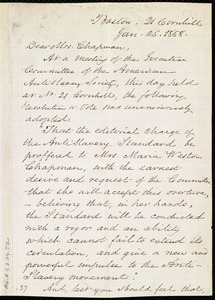 Boston, 21 Cornhill
Jan. 25. 1858.
Dear Mrs. Chapman,
At a meeting of the Executive
Committee of the American
Anti-Slavery Society, this day held
at No. 21 Cornhill, the following
Resolution or Vote was unanimously
adopted:
"That the editorial charge of
the Anti-Slavery Standard be
proffered to Mrs. Maria Weston
Chapman, with the earnest
desire and request of the Committee
that she will accept this overture,
– believing that, in her hands,
the Standard will be conducted
with a vigor and an ability
which cannot fail to extend its
circulation, and give a new and
powerful impulse to the Anti-
Slavery movement."
And, lest you should feel that,